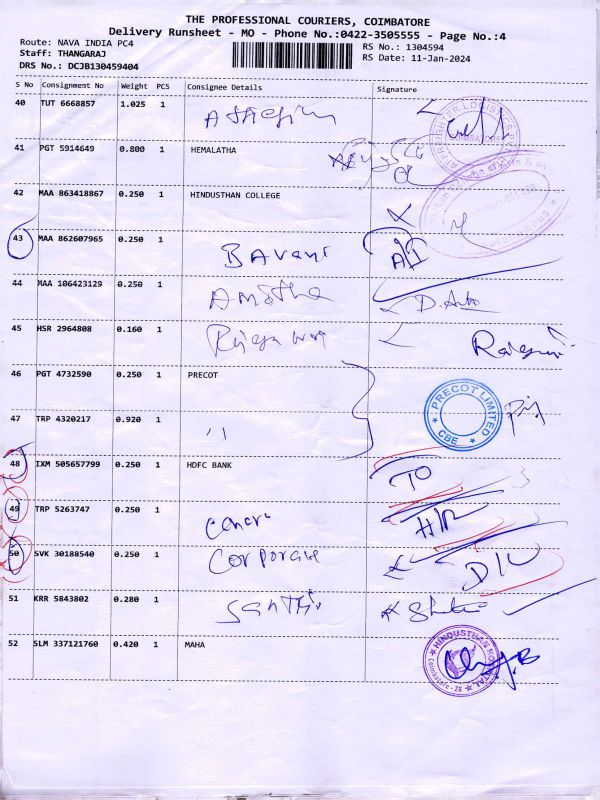 THE PROFESSIONAL COURIERS, COIMBATORE
Delivery Runsheet - MO - Phone No.:0422-3505555 - Page No.:4
Route: NAVA INDIA PC4
Staff: THANGARAJ
DRS No.: DCJB130459404
RS No.: 1304594
RS Date: 11-Jan-2024
S No Consignment No Weight PCS Consignee Details Signature
40 TUT 6668857 1.025 1
41 PGT 5914649 0.800 1 HEMALATHA
42 MAA 863418867 0.250 1 HINDUSTHAN COLLEGE
43 MAA 862607965 0.250 1 Bavani
44 MAA 106423129 0.250 1 Amitha
45 HSR 2964808 0.160 1
46 PGT 4732590 0.250 1 PRECOT
PRECOT LIMITED
CBE
47 TRP 4320217 0.920 1 11
48 IXM 505657799 0.250 1 HDFC BANK TO
49 TRP 5263747 0.250 1
50 SVK 30188540 0.250 1 Corporate
51 KRR 5843802 0.280 1 Santhi
52 SLM 337121760 0.420 1 MAHA
HINDUSTHAN HOSPITAL
Coimbatore - 28